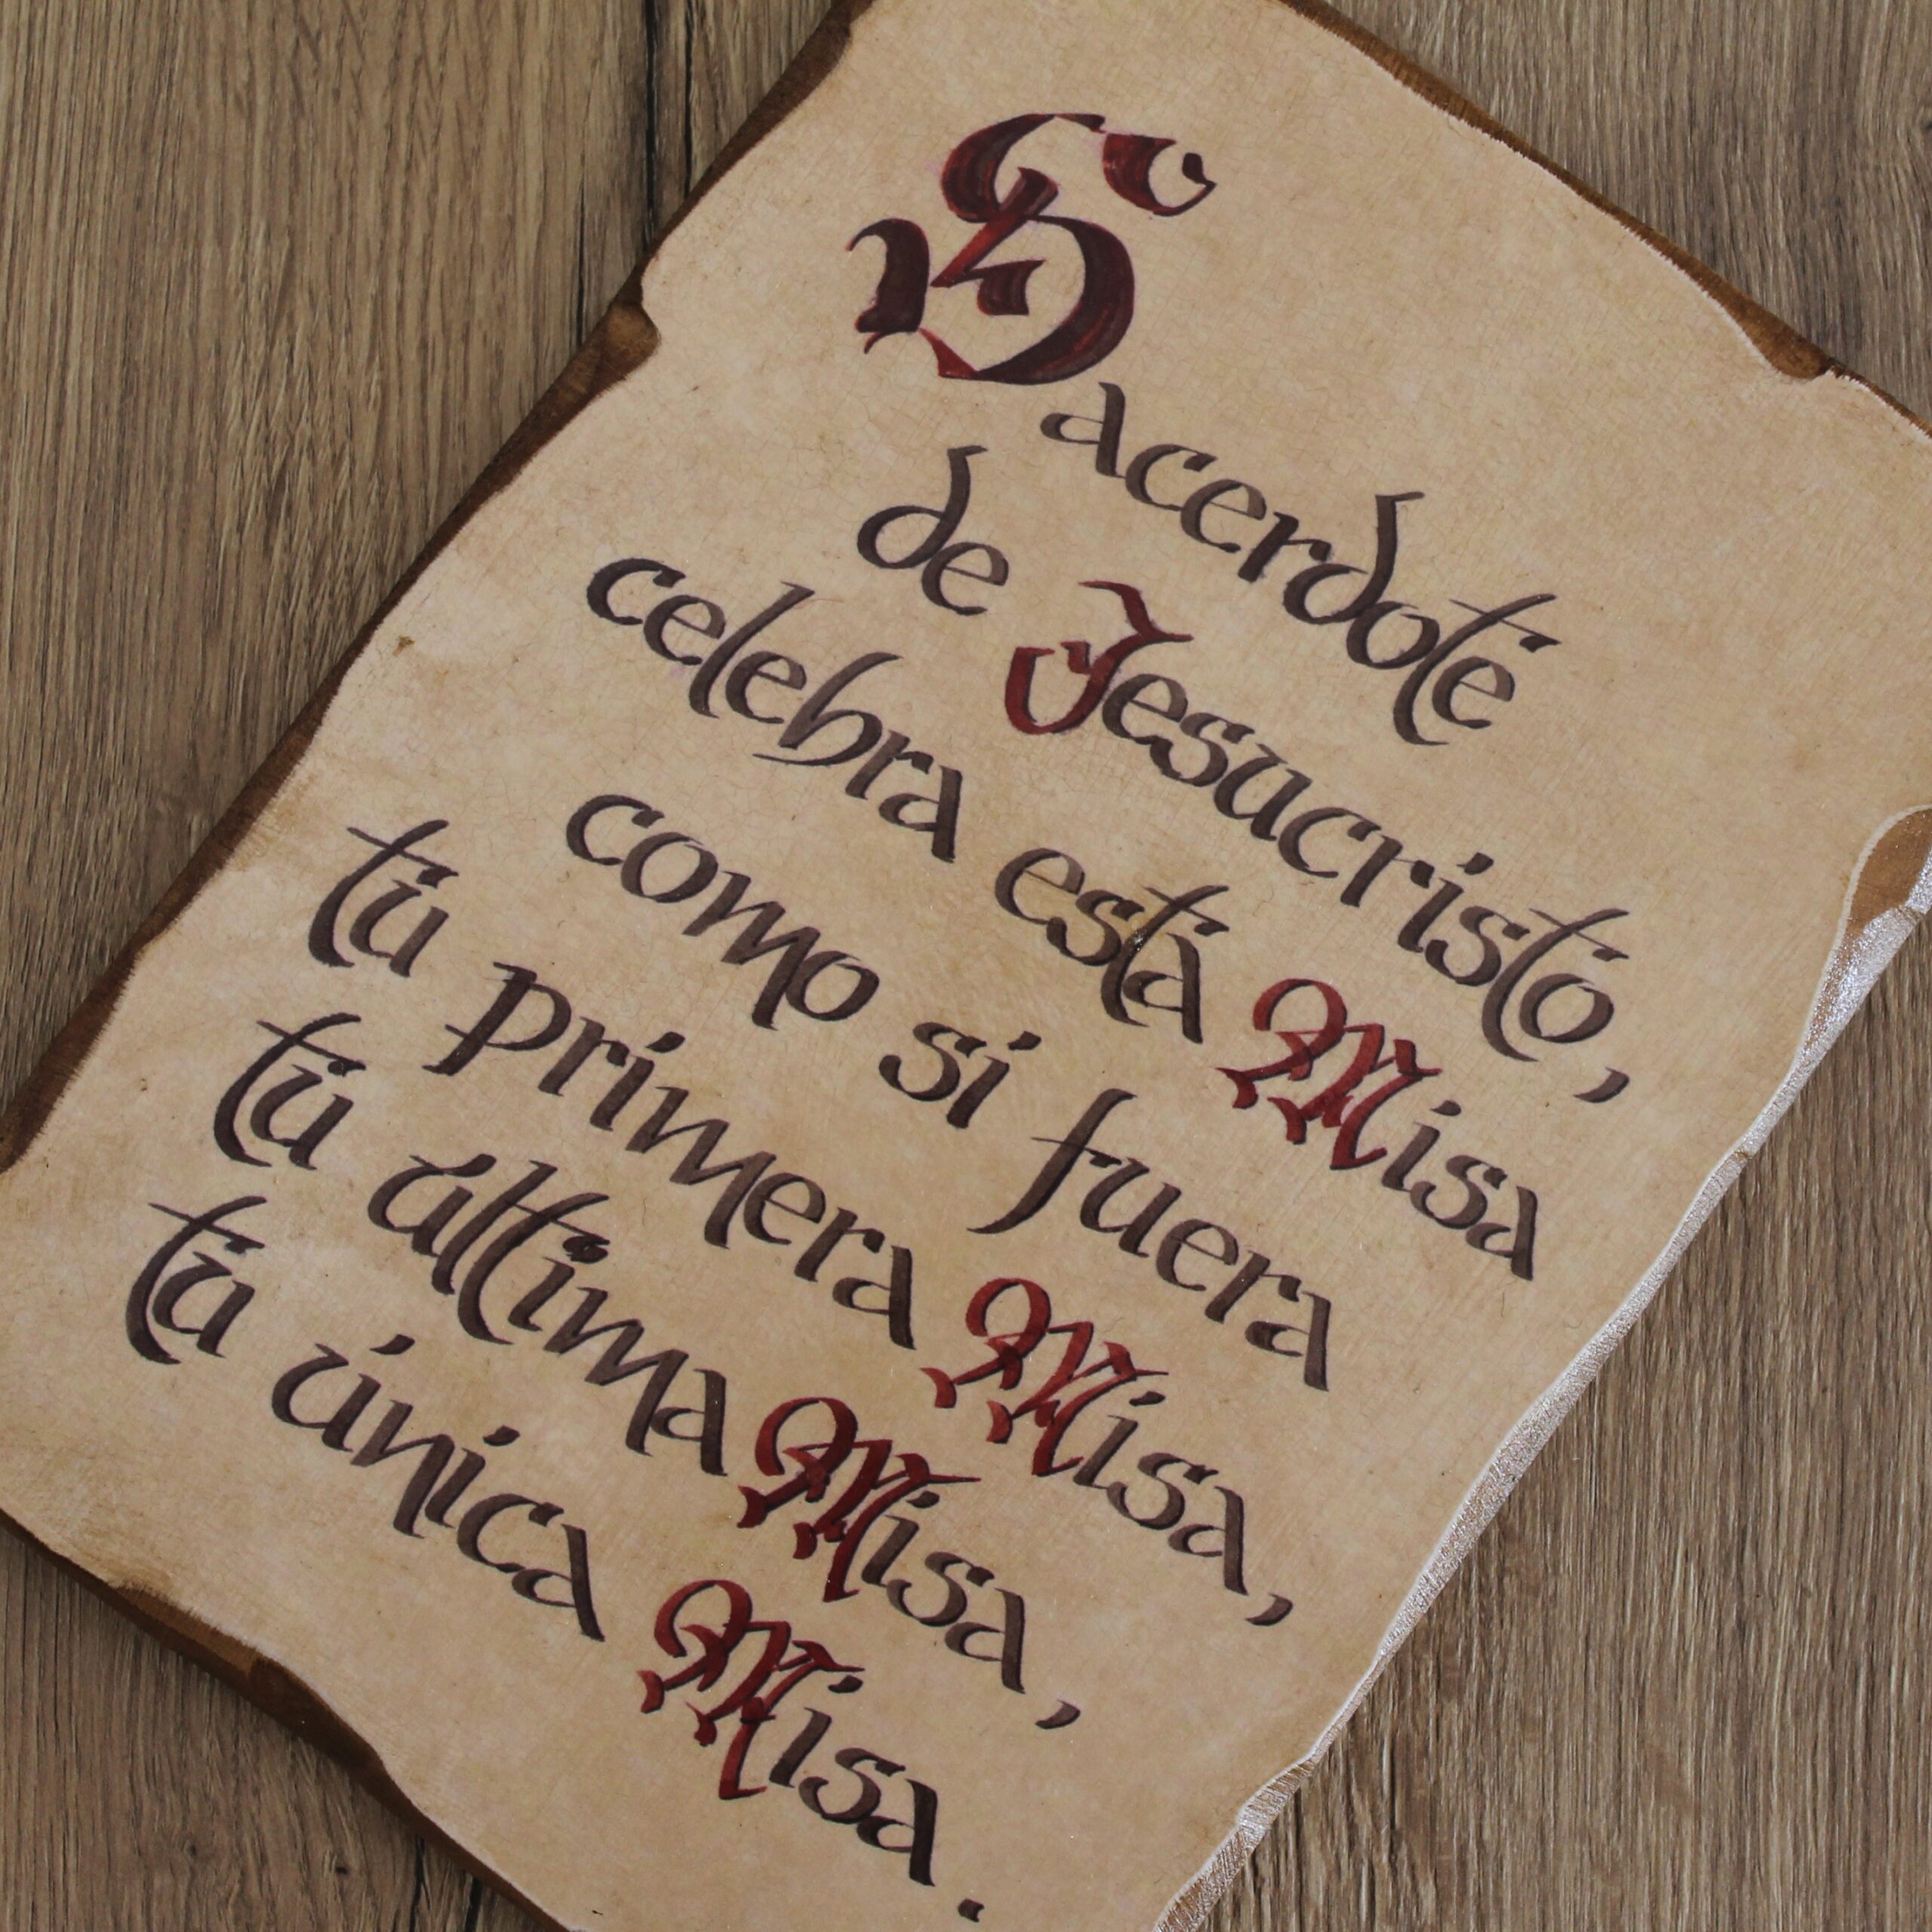 Sacerdote
de Jesucristo,
celebra esta Misa
como si fuera
tu primera Misa,
tu ultima Misa,
tu única Misa.